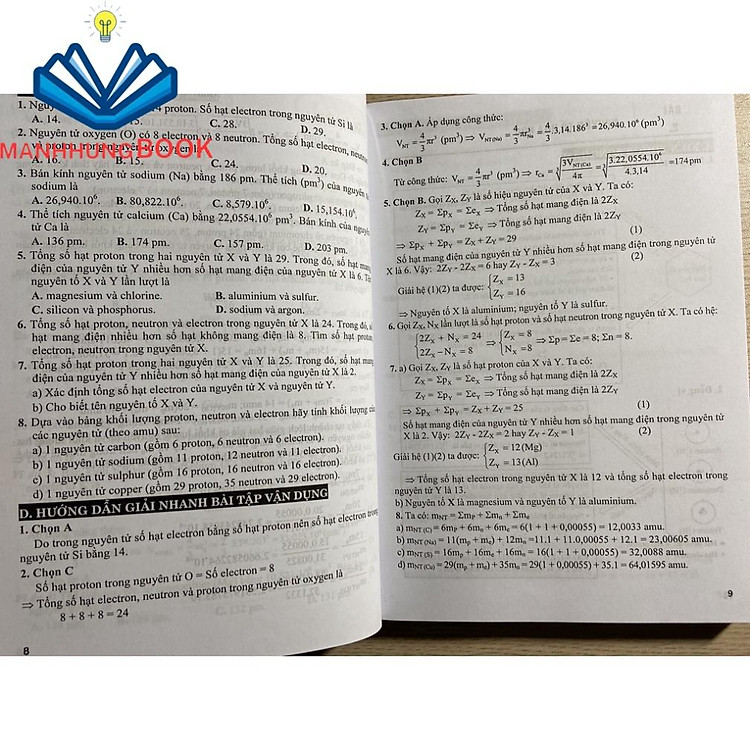 MANHHUNGBOOK
1. proton. Số hạt electron trong nguyên tử Si là
A. 14. C. 28. D. 29.
2. Nguyên tử oxygen (O) có 8 electron và 8 neutron. Tổng số hạt electron,
A. 16. B. C. 24. D. 20.
3. Bán kính nguyên tử sodium (Na) bằng 186 pm. Thể tích (pm³) của nguyên
sodium là
A. 26,940.10⁶. B. 80,822.10⁶. C. 8,579.10⁶. D. 15,154.10⁶.
4. Thể tích nguyên tử calcium (Ca) bằng 22,0554.10⁶ pm³. Bán kính của nguyên
tử Ca là
A. 136 pm. B. 174 pm. C. 157 pm. D. 203 pm.
5. Tổng số hạt proton trong hai nguyên tử X và Y là 29. Trong đó, số hạt mang
điện của nguyên tử Y nhiều hơn số hạt mang điện của nguyên tử X là 6.
nguyên tố X và Y lần lượt là
A. magnesium và chlorine. B. aluminium và sulfur.
C. silicon và phosphorus. D. sodium và argon.
6. Tổng số hạt proton, neutron và electron trong nguyên tử X là 24. Trong đó,
hạt mang điện nhiều hơn số hạt không mang điện là 8. Tìm số hạt
electron, neutron trong nguyên tử X.
7. Tổng số hạt proton trong hai nguyên tử X và Y là 25. Trong đó, số hạt mang
điện của nguyên tử Y nhiều hơn số hạt mang điện của nguyên tử X là 2.
a) Xác định tổng số hạt electron của nguyên tử X và nguyên tử Y.
b) Cho biết tên nguyên tố X và Y.
8. Dựa vào bảng khối lượng proton, neutron và electron hãy tính khối lượng của
các nguyên tử (theo amu) sau:
a) 1 nguyên tử carbon (gồm 6 proton, 6 neutron và 6 electron).
b) 1 nguyên tử sodium (gồm 11 proton, 12 neutron và 11 electron).
c) 1 nguyên tử sulphur (gồm 16 proton, 16 neutron và 16 electron).
d) 1 nguyên tử copper (gồm 29 proton, 35 neutron và 29 electron).
D. HƯỚNG DẪN GIẢI NHANH BÀI TẬP VẬN DỤNG
1. Chọn A
Do trong nguyên tử số hạt electron bằng số hạt proton nên số hạt electron trong
nguyên tử Si bằng 14.
2. Chọn C
Số hạt proton trong nguyên tử O = Số electron = 8
⇒ Tổng số hạt electron, neutron và proton trong nguyên tử oxygen là
8 + 8 + 8 = 24
8
3. Chọn A. Áp dụng công thức:
V_NT = 4/3 πr³ (pm³) ⇒ V_NT(Na) = 4/3 πr³_Na = 4/3 .3,14.186³ = 26,940.10⁶ (pm³)
4. Chọn B
Từ công thức: V_NT = 4/3 πr³ (pm³) ⇒ r_Ca = ∛(3V_NT(Ca)/4π) = ∛(3.22,0554.10⁶/4.3,14) = 174pm
5. Chọn B. Gọi Z_X, Z_Y là số hiệu nguyên tử của X và Y. Ta có:
Z_X = Σp_X = Σe_X ⇒ Tổng số hạt mang điện là 2Z_X
Z_Y = Σp_Y = Σe_Y ⇒ Tổng số hạt mang điện là 2Z_Y
⇒ Σp_X + Σp_Y = Z_X + Z_Y = 29 (1)
Số hạt mang điện của nguyên tử Y nhiều hơn số hạt mang điện trong nguyên tử
X là 6. Vậy: 2Z_Y - 2Z_X = 6 hay Z_Y - Z_X = 3 (2)
Giải hệ (1)(2) ta được: { Z_X = 13
Z_Y = 16
⇒ Nguyên tố X là aluminium; nguyên tố Y là sulfur.
6. Gọi Z_X, N_X lần lượt là số hạt proton và số hạt neutron trong nguyên tử X. Ta có hệ:
{ 2Z_X + N_X = 24 ⇒ { Z_X = 8 ⇒ Σp = Σe = 8; Σn = 8.
2Z_X – N_X = 8 N_X = 8
7. a) Gọi Z_X, Z_Y là số proton của X và Y. Ta có:
Z_X = Σp_X = Σe_X ⇒ Tổng số hạt mang điện là 2Z_X
Z_Y = Σp_Y = Σe_Y ⇒ Tổng số hạt mang điện là 2Z_Y
⇒ Σp_X + Σp_Y = Z_X + Z_Y = 25 (1)
Số hạt mang điện của nguyên tử Y nhiều hơn số hạt mang điện trong nguyên tử
X là 2. Vậy: 2Z_Y - 2Z_X = 2 hay Z_Y - Z_X = 1 (2)
Giải hệ (1)(2) ta được: { Z_X = 12(Mg)
Z_Y = 13(Al)
⇒ Tổng số hạt electron trong nguyên tử X là 12 và tổng số hạt electron trong
nguyên tử Y là 13.
b) Nguyên tố X là magnesium và nguyên tố Y là aluminium.
8. Ta có: m_NT = Σm_P + Σm_n + Σm_e
a) m_NT (C) = 6m_P + 6m_n + 6m_e = 6(1 + 1 + 0,00055) = 12,0033 amu.
b) m_NT (Na) = 11(m_p + m_e) + 12m_n = 11.1 + 11.0,00055 + 12.1 = 23,00605 amu.
c) m_NT (S) = 16m_p + 16m_n + 16m_e = 16(1 + 1 + 0,00055) = 32,0088 amu.
d) m_NT (Cu) = 29(m_p + m_e) + 35m_n = 29(1 + 0,00055) + 35.1 = 64,01595 amu.
9